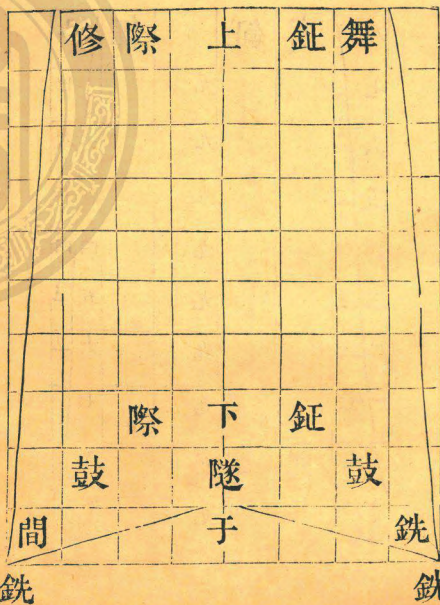 舞 鉦 上 際 修
鉦 下 際
鼓 隧 鼓
銑 于 間
銑 銑